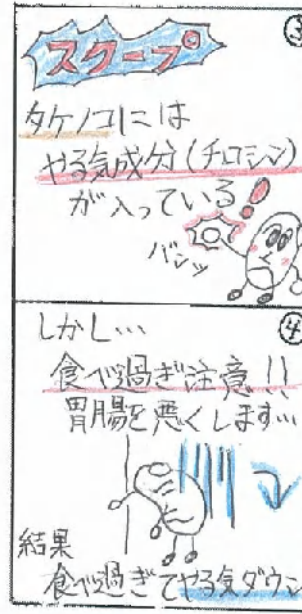 ③
スクープ
タケノコには
やる気成分(チロシン)
が入っている!
バンッ
④
しかし…
食べ過ぎ注意!!
胃腸を悪くします…
結果
食べ過ぎてやる気ダウン